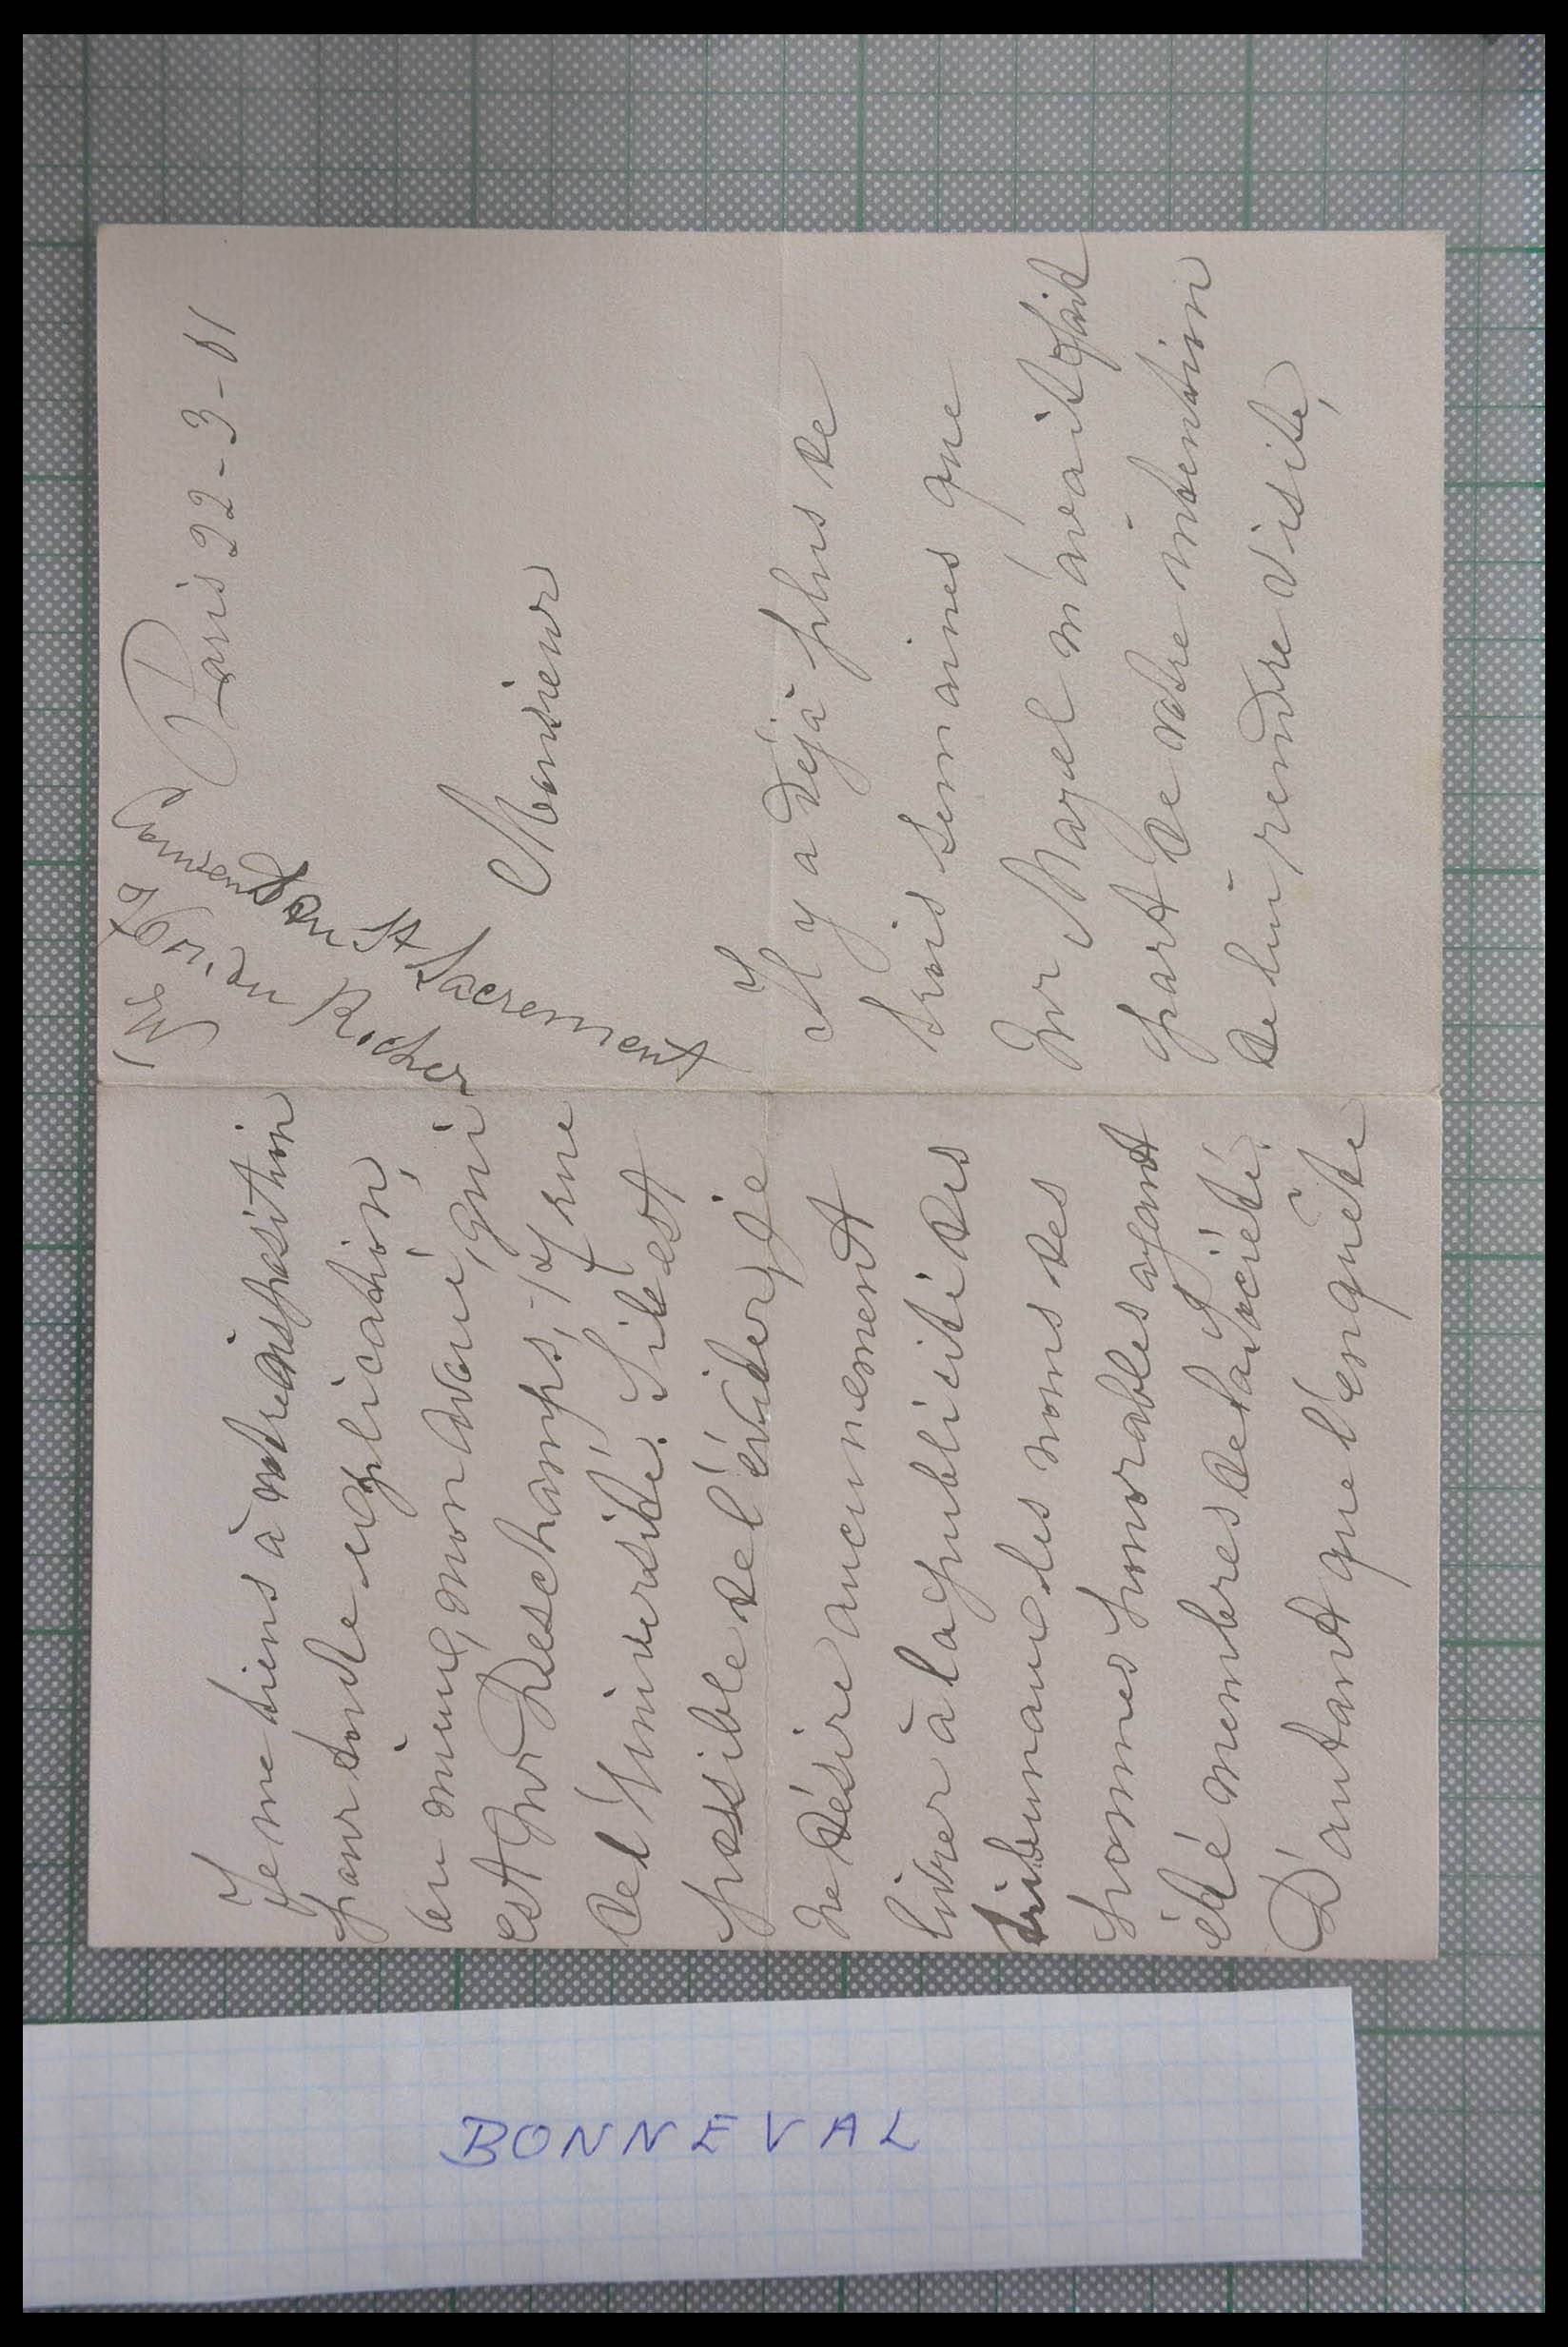 Paris 22-3-01
Couvent du St Sacrement
Bon du Rocher
Monsieur
Il y a déjà plus de
trois semaines que
Mr Mazel m'avait fait
part de votre intention
de lui rendre visite,
Je me tiens à votre disposition
pour toute explication,
ou même, mon avoué, qui
est Mr Deschamps, 17 rue
de l'Université. S'il est
possible de l'éviter, je
ne désire aucunement
livrer à la publicité des
tribunaux les noms des
hommes honorables ayant
été membres de la Société.
D'autant que l'enquête
BONNEVAL